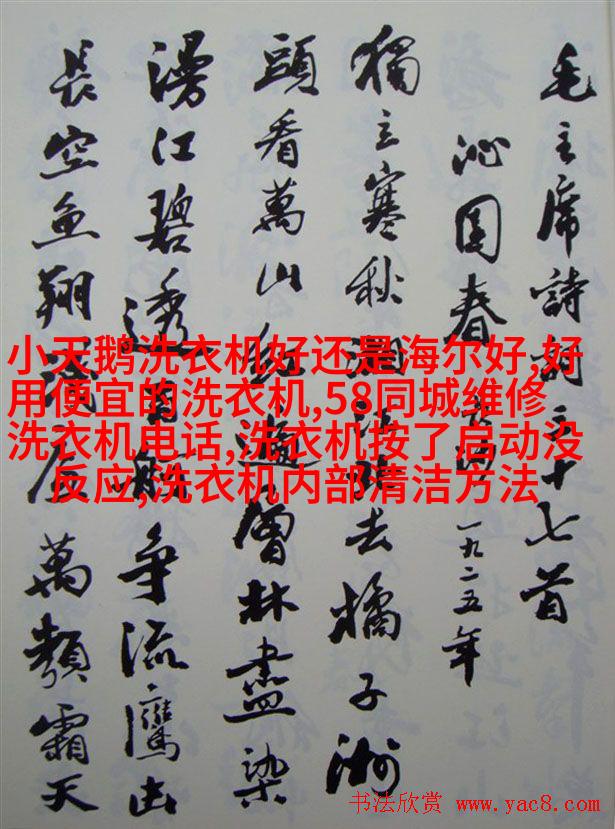 毛主席詩詞三十七首
沁園春 長沙 一九二五年
獨立寒秋湘江北去橘子洲
頭看萬山紅遍層林盡染
漫江碧透百舸争流鷹击
長空魚翔淺底萬類霜天
小天鹅洗衣机好还是海尔好,好
用便宜的洗衣机,58同城维修
洗衣机电话,洗衣机按了启动没
反应,洗衣机内部清洁方法
书法欣赏 www.yac8.com